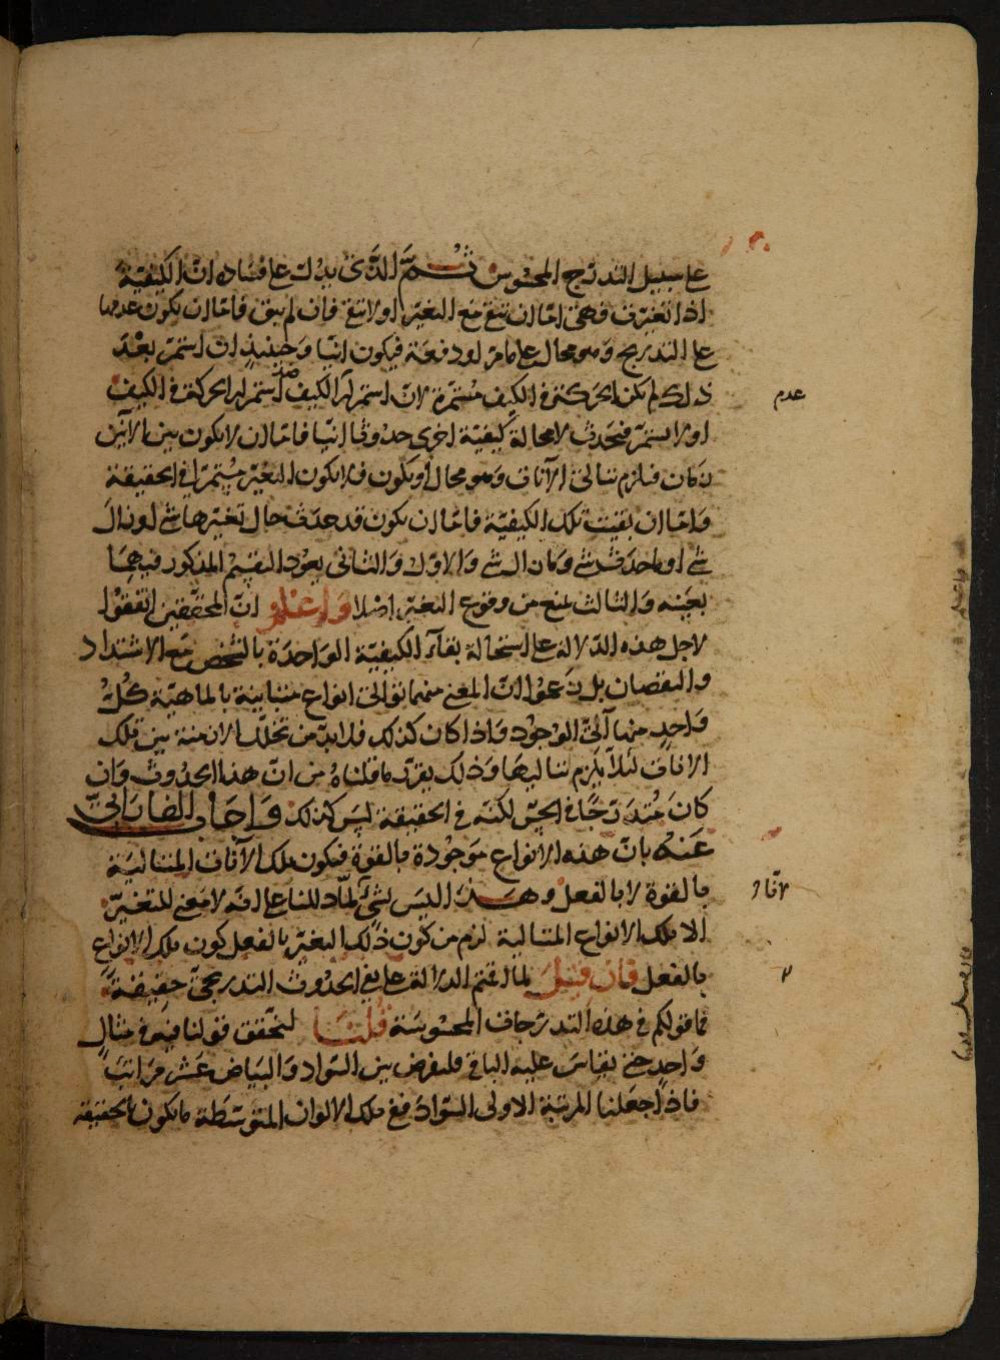 على سبيل التدرج المحسوس ثم الذى يدل على فساده ان الكيفية
اذا تغيرت فهى اما ان تبقى مع التغير او لا تبقى فان لم يبق فاما ان يكون عدمها
على التدريج وهو محال على ما مر او دفعة فيكون انيا وحينئذ ان استمر بعد
ذلك لم تكن الحركة فى الكيف مستمرة لان استمرار الكيف استمرار الحركة فى الكيف
عدم
او لا يستمر فتحدث لا محالة كيفية اخرى حدوثا انيا فاما ان لا يكون بين الآنين
زمان فيلزم تتالى الآنات وهو محال او يكون فلا يكون التغير مستمرا فى الحقيقة
واما ان بقيت تلك الكيفية فاما ان يكون قد حدث حال تغيرها شى او زال
شى او ما حدث شى وما زال شى والاول والثانى يعود التقسيم المذكور فيهما
بعينه والثالث لمنع من وقوع التغير اصلا واعلم ان المحققين اتفقوا
لاجل هذه الدلالة على استحالة بقآء الكيفية الواحدة بالشخص مع الاشتداد
والنقصان بل زعموا ان المعنى منهما توالى انواع متباينة بالماهية كل
واحد منها آنى الوجود واذا كان كذلك فلا بد من تخلل الازمنة بين تلك
الانات لئلا يلزم تتاليها وذلك يقرر ما قلناه من ان هذا الحدوث وان
كان متدرجا فى الحس لكنه فى الحقيقة ليس كذلك واجاب الفارابى
عنه بان هذه الانواع موجودة بالقوة فيكون تلك الآنات المتتالية
بالقوة لا بالفعل وهذا ليس بشى لما دللنا على انه لا معنى للتغير
الا تلك الانواع المتتالية لزم من كون ذلك التغير بالفعل كون تلك الانواع
بالفعل فان قيل لما اقمتم الدلالة على نفى الحدوث التدريجى حقيقة
فما قولكم فى هذه التدرجات المحسوسة قلنا لنحقق قولنا فيه فى مثال
واحد حتى يقاس عليه الباقى فلنفرض بين السواد والبياض عشر مراتب
فاذا جعلنا المرتبة الاولى السواد ففى تلك الالوان المتوسطة ما يكون بالحقيقة